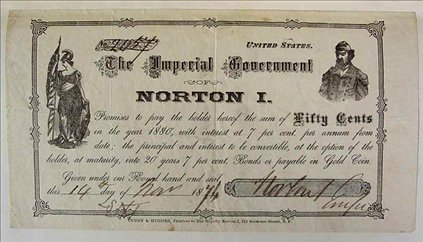 UNITED STATES.
The Imperial Government
OF
NORTON I.
Promises to pay the holder hereof the sum of Fifty Cents
in the year 1880, with interest at 7 per cent. per annum from
date; the principal and interest to be convertible, at the option of the
holder, at maturity, into 20 years 7 per cent. Bonds or payable in Gold Coin.
Given under our Royal hand and seal
this 14 day of Mar 1874 Norton I
CUDDY & HUGHES, Printers to His Majesty Norton I, 511 Sansome Street, S. F.